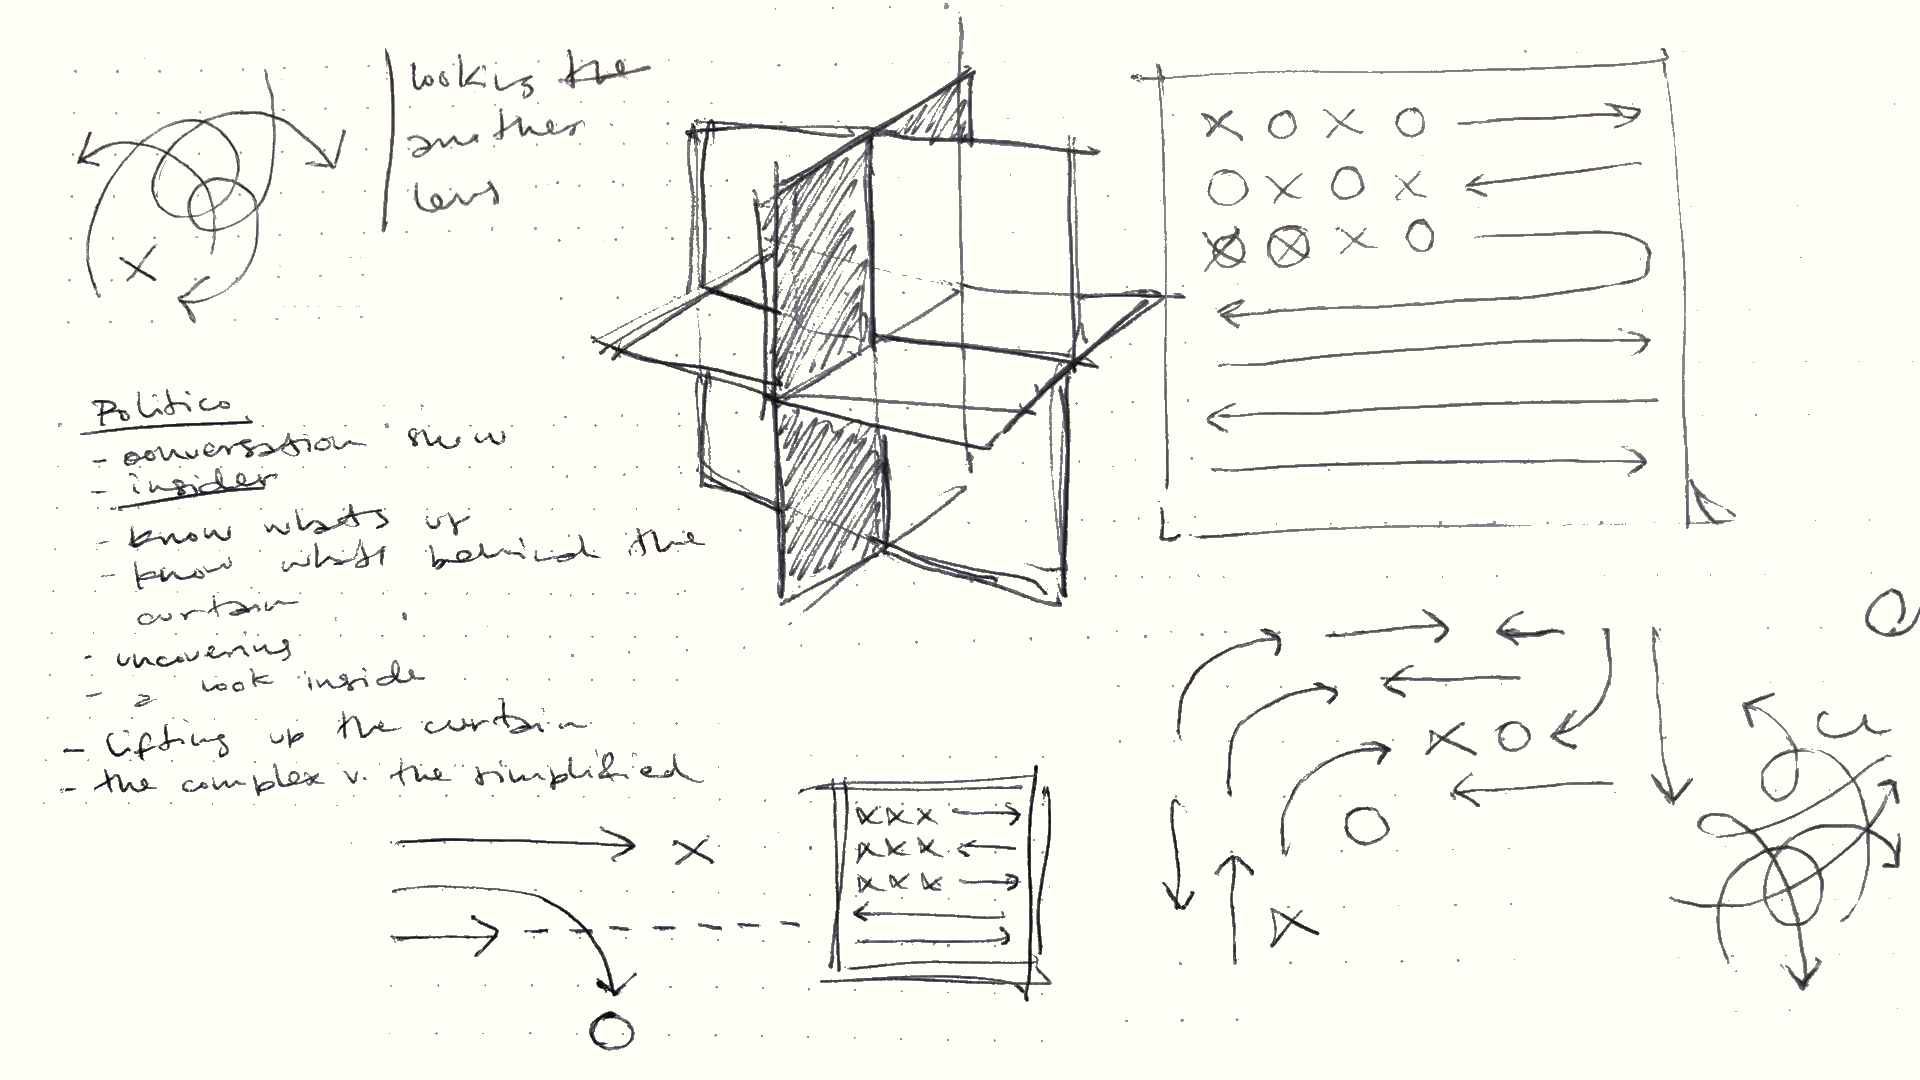 looking the
another
lens
Politico
- conversation show
- insider
- know whats up
- know whats behind the
curtain
- uncovering
- a look inside
- lifting up the curtain
- the complex v. the simplified
X O X O
O X O X
X O
X O
X X X
X X X
X X X